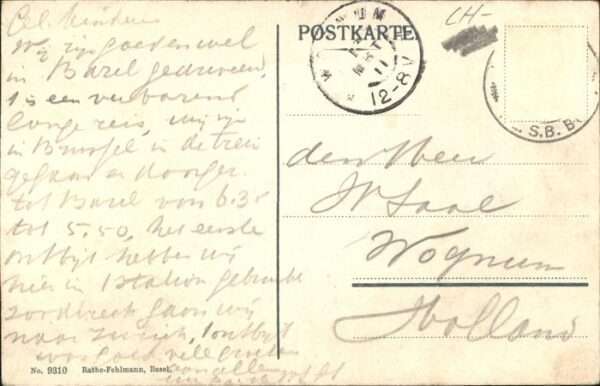 Wij zijn goed en wel
in Bazel
is een verbazend
lange reis, wij zijn
in Brussel in de trein
gegaan en
tot Bazel van 6.35
tot 5,50, het eerste
ontbijt hebben wij
hier in 't Station gebruikt
zoo direct gaan wij
naar Zurich, 't ontbijt
was goed, vele groeten
van allen
No. 9310 Rathe-Fehlmann, Basel.
POSTKARTE
CH-
UM
11
12-8V
S.B.B.
den Heer
W Saal
Wognum
Holland